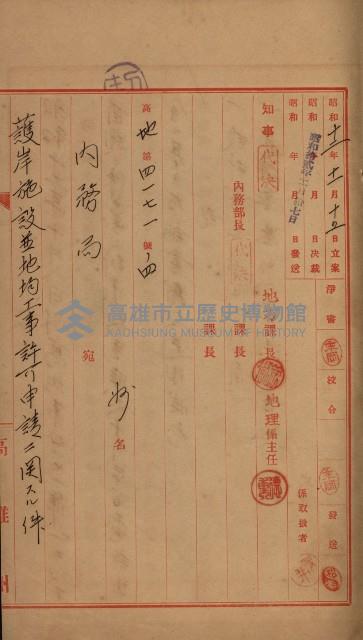 昭和十二年十一月十二日立案 淨書 校合 發送
昭和 年 月 日決裁
昭和拾貳年 月 拾七日
昭和 年 月 日發送 係取扱者
知事 代決 地方課長 地理係主任
內務部長 代決 課長
課長
高地第四一七一號ノ四 州名
內務局 宛
護岸施設並地均工事許可申請ニ関スル件
高雄市立歷史博物館
KAOHSIUNG MUSEUM OF HISTORY
高雄州